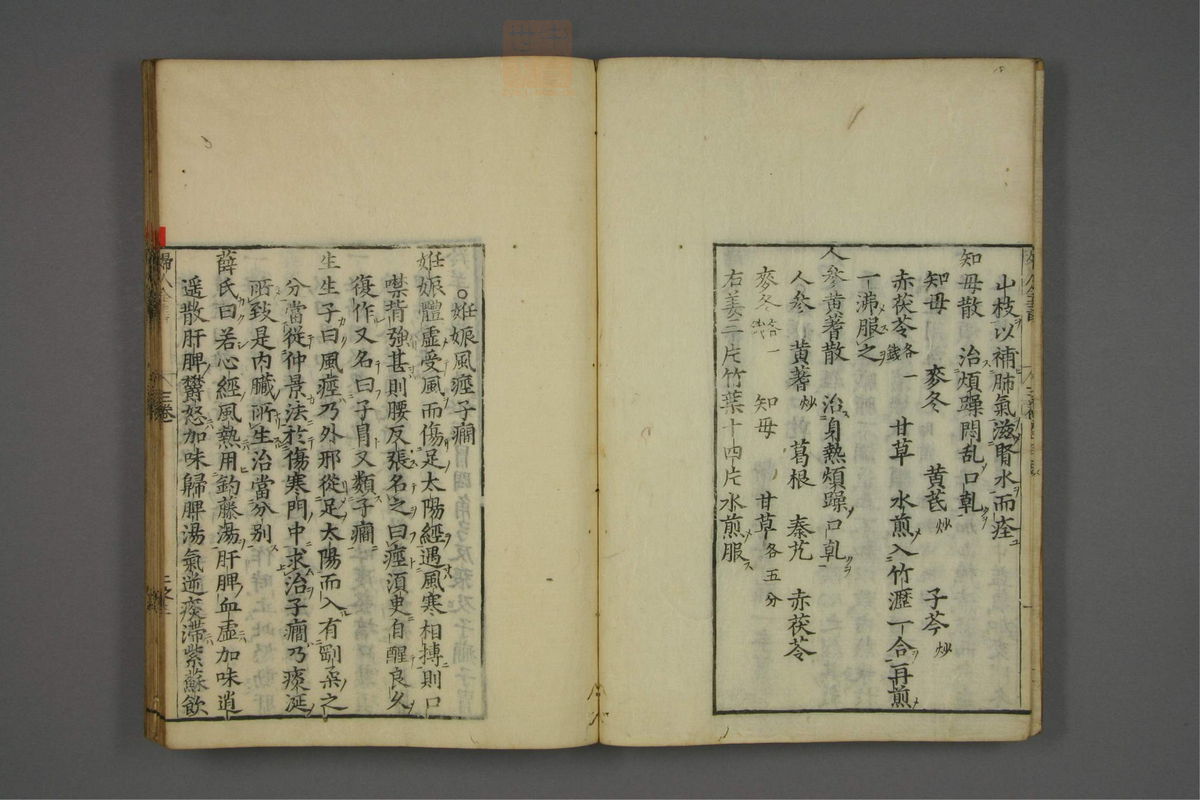 山枝以補肺氣滋腎水而痊
知母散 治煩躁悶乱口乾
知母 麥冬 黄芪炒 子芩炒
赤茯苓各一錢 甘草 水煎入竹瀝一合再煎
一沸服之
人參黄蓍散 治身熱煩躁口乾
人參 黄蓍炒 葛根 秦艽 赤茯苓
麥冬各一錢 知母 甘草各五分
右姜三片竹葉十四片水煎服
○妊娠風痙子癇
妊娠體虚受風而傷足太陽經遇風寒相搏則口
噤背強甚則腰反張名之曰痙須臾自醒良久
復作又名曰子冒又類子癇
生生子曰風痙乃外邪從足太陽而入有剛柔之
分當從仲景法於傷寒門中求治子癇乃痰涎
所致是内臟所生治當分别
薛氏曰若心經風熱用鈎藤湯肝脾血虚加味逍
遥散肝脾鬱怒加味歸脾湯氣逆痰滞紫蘇飲
三卷